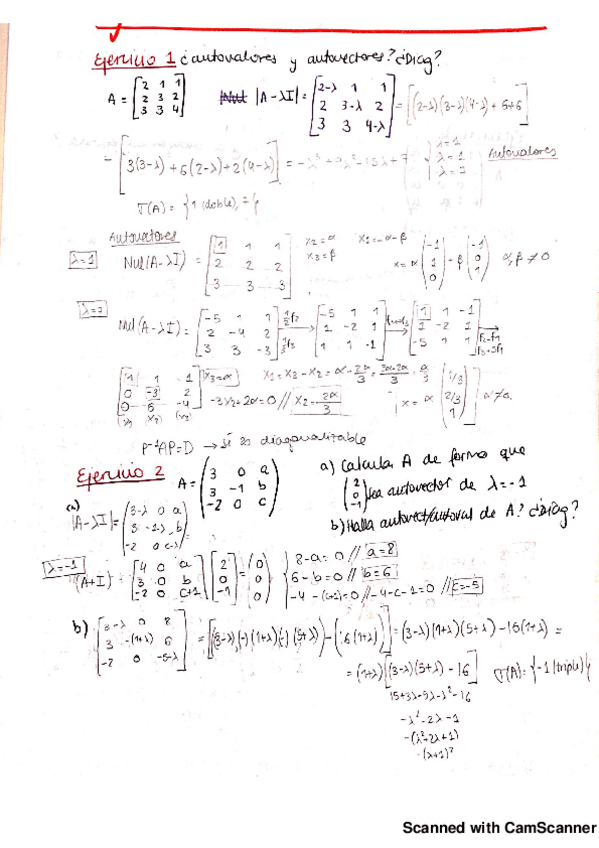 Ejercicio 1 ¿autovalores y autovectores? ¿Diag?
A = [2 1 1; 2 3 2; 3 3 4] |A-λI| = [2-λ 1 1; 2 3-λ 2; 3 3 4-λ] = [(2-λ)(3-λ)(4-λ) + 6+6]
- [3(3-λ) + 6(2-λ) + 2(4-λ)] = -λ³ + 9λ² - 15λ + 7 { λ=1 λ=1 λ=7 Autovalores
σ(A) = {1 (doble), 7}
Autovectores
λ=1 Nul(A-λI) = [1 1 1; 2 2 2; 3 3 3] x₂=α x₃=β x₁=-α-β x=α(-1 1 0) + β(-1 0 1) α,β ≠ 0
λ=7
Nul(A-λI) = [-5 1 1; 2 -4 2; 3 3 -3] ½f₂ ⅓f₃ → [-5 1 1; 1 -2 1; 1 1 -1] → [1 1 -1; 1 -2 1; -5 1 1] f₂-f₁ f₃+5f₁
[1 1 -1; 0 -3 2; 0 6 -4] x₃=α x₁ = x₃-x₂ = α - 2α/3 = 3α-2α/3 = α/3
-3x₂+2α=0 // x₂ = 2α/3 x = α(1/3 2/3 1) α≠0
(x₁) (x₂) (x₃)
P⁻¹AP=D → Sí es diagonalizable
Ejercicio 2 A = (3 0 a; 3 -1 b; -2 0 c) a) Calcular A de forma que
(2 0 -1) sea autovector de λ=-1
a) |A-λI| = (3-λ 0 a; 3 -1-λ b; -2 0 c-λ)
b) Halla autovect/autoval de A? ¿Diag?
λ=-1 (A+I) = [4 0 a; 3 0 b; -2 0 c+1] [2 0 -1] = (0 0 0) { 8-a=0 // a=8
6-b=0 // b=6
-4-(c+1)=0 // -4-c-1=0 // c=-5
b) [3-λ 0 8; 3 -(1+λ) 6; -2 0 -5-λ] = [(3-λ)(-)(1+λ)(-)(5+λ)) - (16(1+λ))] = (3-λ)(1+λ)(5+λ) - 16(1+λ) =
= (1+λ)[(3-λ)(5+λ) - 16] σ(A) = {-1 (triple)}
15+3λ-5λ-λ²-16
-λ²-2λ-1
-(λ²+2λ+1)
-(λ+1)²
Scanned with CamScanner